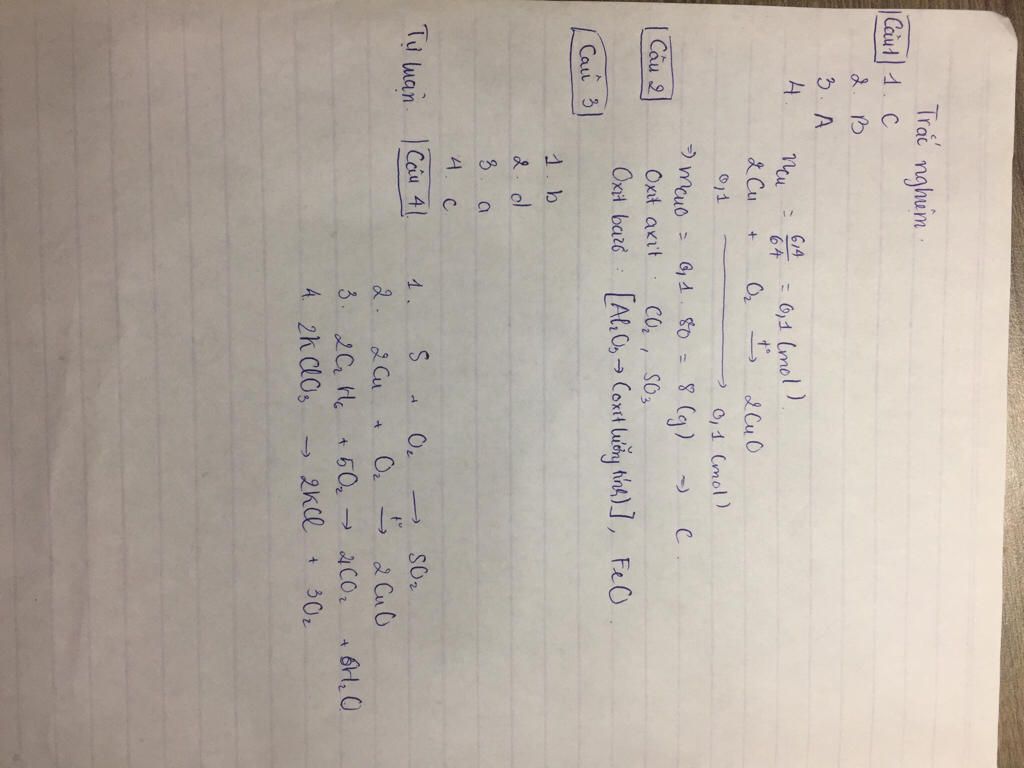 Trắc nghiệm.
Câu 1 1. C
2. B
3. A
4. nCu = 6,4/64 = 0,1 (mol)
2Cu + O₂ —t°→ 2CuO
0,1 ⟶ 0,1 (mol)
⇒ mCuO = 0,1 . 80 = 8 (g) → C.
Câu 2 Oxit axit : CO₂, SO₃
Oxit bazơ : [Al₂O₃ → (oxit lưỡng tính)], FeO
Câu 3
1. b
2. d
3. a
4. c
Tự luận. Câu 4 1. S + O₂ → SO₂
2. 2Cu + O₂ —t°→ 2CuO
3. 2C₂H₆ + 5O₂ → 4CO₂ + 6H₂O
4. 2KClO₃ → 2KCl + 3O₂